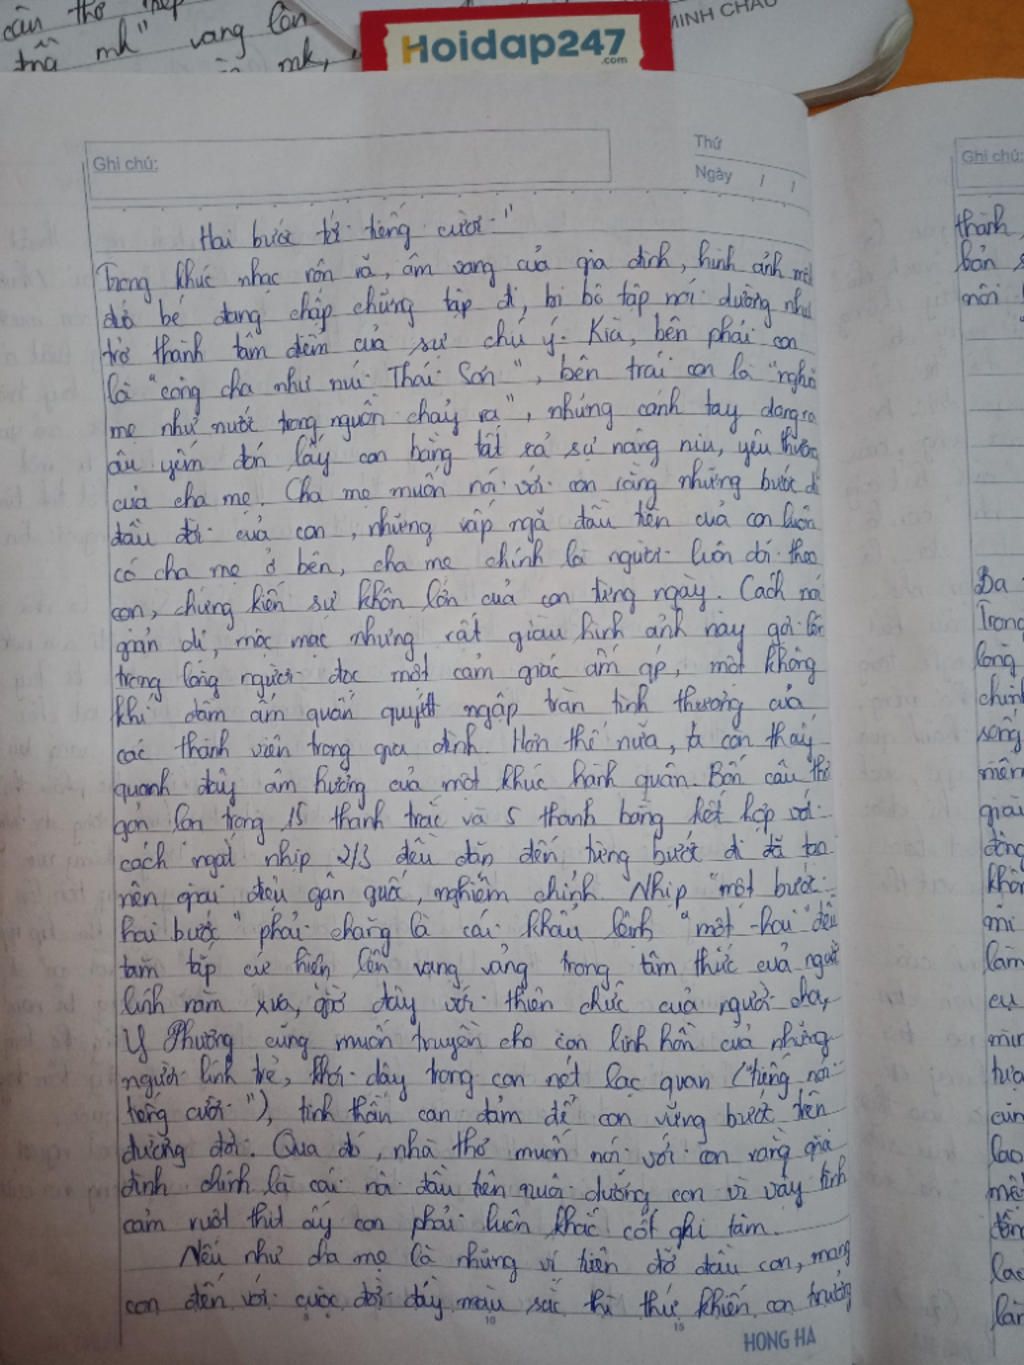 cần thơ
trả mk" vang lên
mk,
Hoidap247
.com
MINH CHÂU
Ghi chú:
Thứ
Ngày / /
Hai bước tới tiếng cười."
Trong khúc nhạc rộn rã, âm vang của gia đình, hình ảnh một
đứa bé đang chập chững tập đi, bi bô tập nói dường như
trở thành tâm điểm của sự chú ý. Kìa, bên phải con
là "công cha như núi Thái Sơn", bên trái con là "nghĩa
mẹ như nước trong nguồn chảy ra", những cánh tay dang ra
âu yếm đón lấy con bằng tất cả sự nâng niu, yêu thương
của cha mẹ. Cha mẹ muốn nói với con rằng những bước đi
đầu đời của con, những vấp ngã đầu tiên của con luôn
có cha mẹ ở bên, cha mẹ chính là người luôn dõi theo
con, chứng kiến sự khôn lớn của con từng ngày. Cách nói
giản dị, mộc mạc nhưng rất giàu hình ảnh này gợi lên
trong lòng người đọc một cảm giác ấm áp, một không
khí đầm ấm quấn quýt ngập tràn tình thương của
các thành viên trong gia đình. Hơn thế nữa, ta còn thấy
quanh đây âm hưởng của một khúc hành quân. Bốn câu thơ
gọn lỏn trong 15 thanh trắc và 5 thanh bằng kết hợp với
cách ngắt nhịp 2/3 đều đặn đến từng bước đi đã tạo
nên giai điệu gân guốc, nghiêm chỉnh. Nhịp "một bước
hai bước" phải chăng là cái khẩu lệnh "một-hai" đều
tăm tắp cứ hiện lên vang vảng trong tâm thức của người
lính năm xưa, giờ đây với thiên chức của người cha,
Y Phương cũng muốn truyền cho con linh hồn của những
người lính trẻ, khơi dậy trong con nét lạc quan ("tiếng nói
tiếng cười"), tinh thần can đảm để con vững bước trên
đường đời. Qua đó, nhà thơ muốn nói với con rằng gia
đình chính là cái nôi đầu tiên nuôi dưỡng con vì vậy tình
cảm ruột thịt ấy con phải luôn khắc cốt ghi tâm.
Nếu như cha mẹ là những vì tiên đỡ đầu con, mang
con đến với cuộc đời đầy màu sắc thì thứ khiến con trưởng
5 10 15
HONG HA
Ghi chú:
thành,
bản s
nôi
Da
Trong
lòng
chính
sống
niềm
giải
đồng
khôn
mi
làm
cu
mìn
tựa
cũn
lao
mê
lao
làn